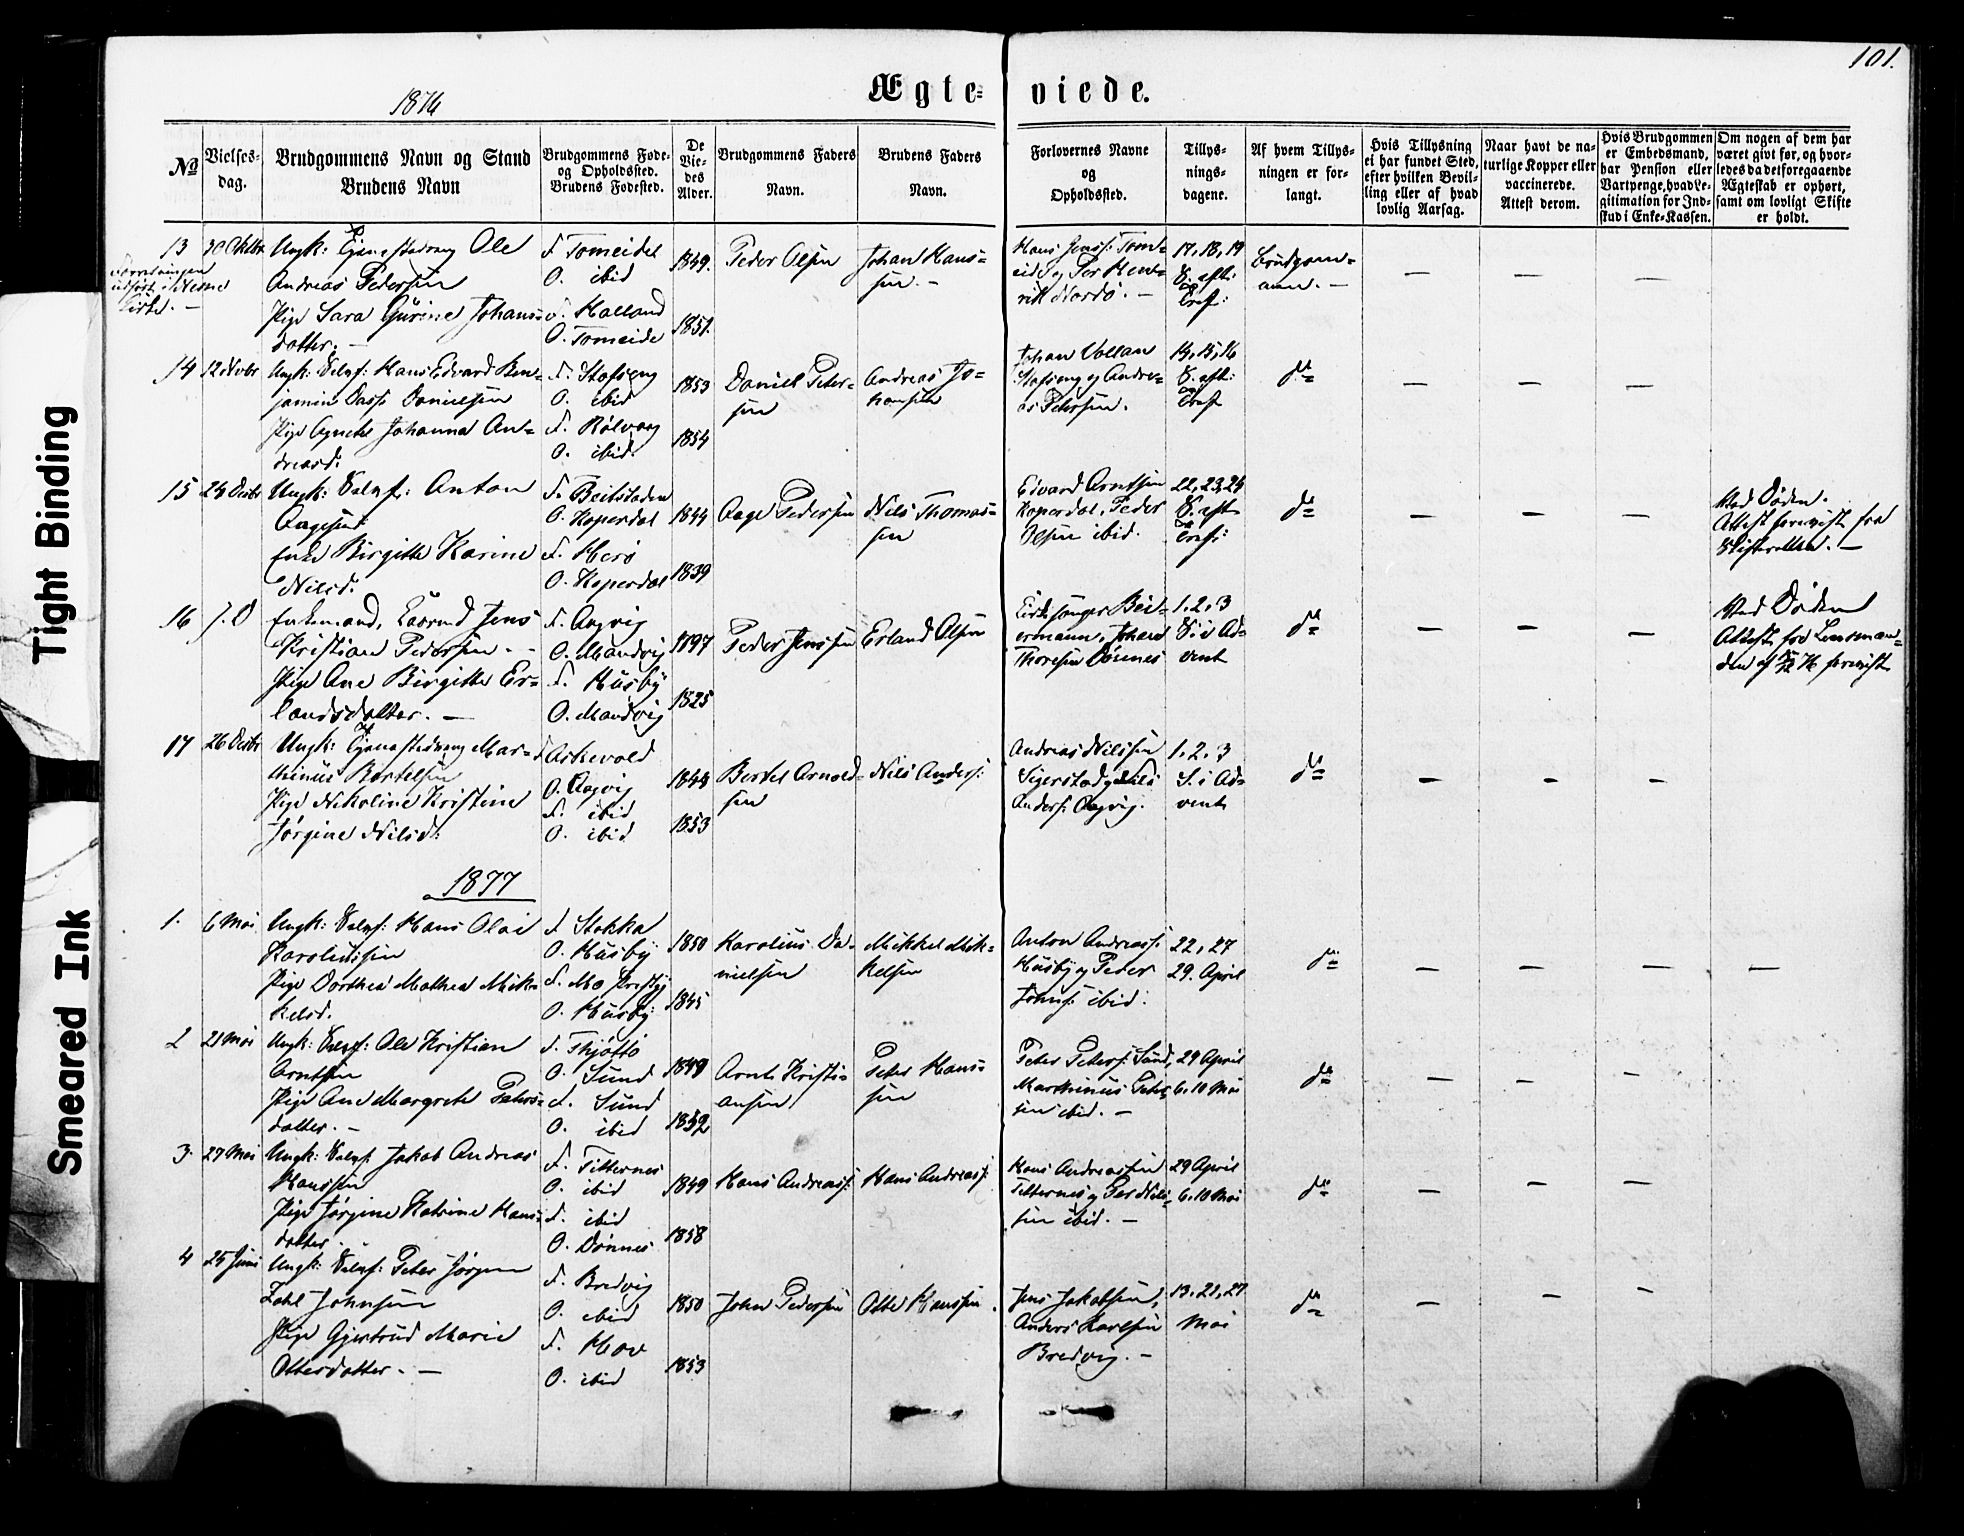 101.
Ægteviede.
1876
No
Vielsesdag.
Brudgommens Navn og Stand
Brudens Navn
Brudgommens Føde-
og Opholdssted.
Brudens Fødested.
De
Vie-
des
Alder.
Brudgommens Faders
Navn.
Brudens Faders
Navn.
Forlovernes Navne
og
Opholdssted.
Tillys-
nings-
dagene.
Af hvem Tillys-
ningen er for-
langt.
Hvis Tillysning
ei har fundet Sted,
efter hvilken Bevil-
ling eller af hvad
lovlig Aarsag.
Naar havt de na-
turlige Kopper eller
vaccinerede.
Attest derom.
Hvis Brudgommen
er Embedsmand,
har Pension eller
Vartpenge, hvad Le-
gitimation for Ind-
skud i Enke-Kassen.
Om nogen af dem har
været givt før, og hvor-
ledes da det foregaaende
Ægteskab er ophørt,
samt om lovligt Skifte
er holdt.
13
30 Oktbr
Ungk: Tjenestedreng Ole
Andreas Pedersen
Pige Sara Gurine Johans-
datter. —
F. Tomeidet
O. ibid
F. Halland
O. Tomeide
1849.
1851.
Peder Olsen
Johan Hans-
sen. —
Hans Jenss: Tom-
eid og Per Hen-
rik Nordø. —
17, 18, 19
S. eft:
Tref:
Brudgom-
men. —
— — —
14
12 Novbr
Ungk: Selvf: Hans Edvard Ben-
jamin Dass Danielsen
Pige Agnete Johanna An-
dreasd.
F. Stofseng
O. ibid
F. Rølvaag
O. ibid.
1853
1854
Daniel Peter-
sen
Andreas Jo-
hansen
Johan Vollan
Stofseng og Andre-
as Petersen.
14, 15, 16
S. eft:
Tref
do
— — —
15
24 Decbr
Ungk: Selvf: Anton
Aagesen
Enke Birgitte Karine
Nilsd.
F. Beitstaden
O. Koperdal
F. Herø
O. Koperdal
1844
1839
Aage Pedersen
Nils Thomas-
sen
Edvard Arntsen
Koperdal, Peder
Olsen ibid.
22, 23, 24
S. eft
Tref:
do
— — —
Ved Døden.
Attest forevist fra
Skifteretten. —
16
s. D
Enkemand, Jens
Kristian Pedersen. —
Pige Ane Birgitte Er-
landsdatter. —
F. Aagvig
O. Mandvig
F. Husby
O. Mandvig
1825
Peder Jenssen
Erland Olsen
Kirkesanger Bei-
ermann, Johan
Thoresen Dønnes
1. 2. 3
S. i Ad-
vent
do
— — —
Ved Døden
Attest fra Lensman-
den forevist
17
26 Decbr
Ungk: Tjenestedreng Mar-
thinus Bertelsen
Pige Nikoline Kristine
Jørgine Nilsd:
F. Askevold
O. Aagvig
F. ibid
O. ibid
1848
1853
Bertel Arnold-
sen
Nils Anders:
Andreas Nilssen
Sigerstad og Nils
Anders: Aagvig.
1. 2. 3
S. i Ad-
vent
do
— — —
1877
1.
6 Mai
Ungk: Selvf: Hans Olai
Karoliussen
Pige Dorthea Mathea Mik-
kelsd.
F. Stokka
O. Husby
F. Mo Prestgj
O. Husby
1850
1845
Karolius Da-
nielsen
Mikkel Mik-
kelsen
Anton Andreass:
Husby og Peder
Johns: ibid.
22, 27
29. April
do
— — — —
2
21 Mai
Ungk: Selvf: Ole Kristian
Arntsen
Pige Ane Margrete Peters-
datter. —
F. Thjøttø
O. Sund
F. Sund
O. ibid
1849
1852
Arnt Kristi-
ansen
Peter Hans-
sen
Peter Peters: Sund,
Marthinus Peter-
sen ibid. —
29 April
6. 10 Mai
do
— — —
3.
27 Mai
Ungk: Selvf: Jakob Andreas
Hanssen
Pige Jørgine Katrine Hans-
datter
F. Titternes
O. ibid
F. ibid
O. Dønnes
1849
1858
Hans Andreass:
Hans Andreass:
Hans Andreassen
Titternes og Per Nils-
sen ibid. —
29 April
6. 10 Mai
do
— — —
4
25 Juni
Ungk: Selvf: Peter Jørgen
Zahl Johnsen
Pige Gjertrud Marie
Ottersdatter. —
F. Bredvig
O. ibid
F. Hov
O. ibid
1850
1853
John Pedersen
Otter Hanssen.
Jens Jakobsen,
Anders Karlsen
Bredvig. —
13. 21, 27
Mai
do
— — —
Tight Binding
Smeared Ink